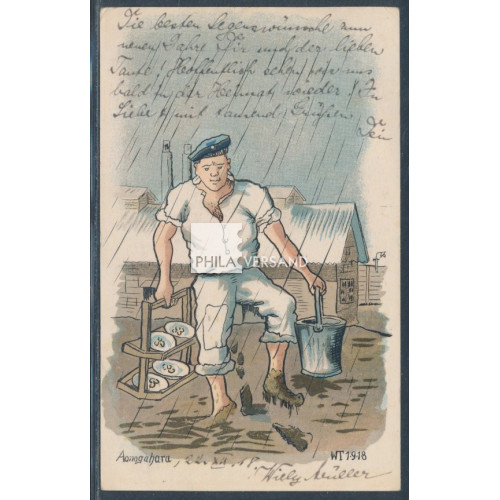 Die besten Segenswünsche zum
neuen Jahre Dir und der lieben
Tante! Hoffentlich sehen wir uns
bald in der Heimat wieder! In
Liebe & mit tausend Grüßen
Dein
PHILA VERSAND
Aonogahara, 22. XII. 18.
WT 1918
Willy Müller